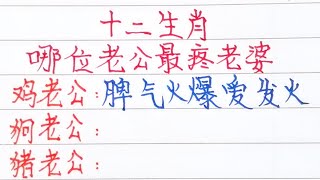 十二生肖
哪位老公最疼老婆
鸡老公：脾气火爆爱发火
狗老公：
猪老公：